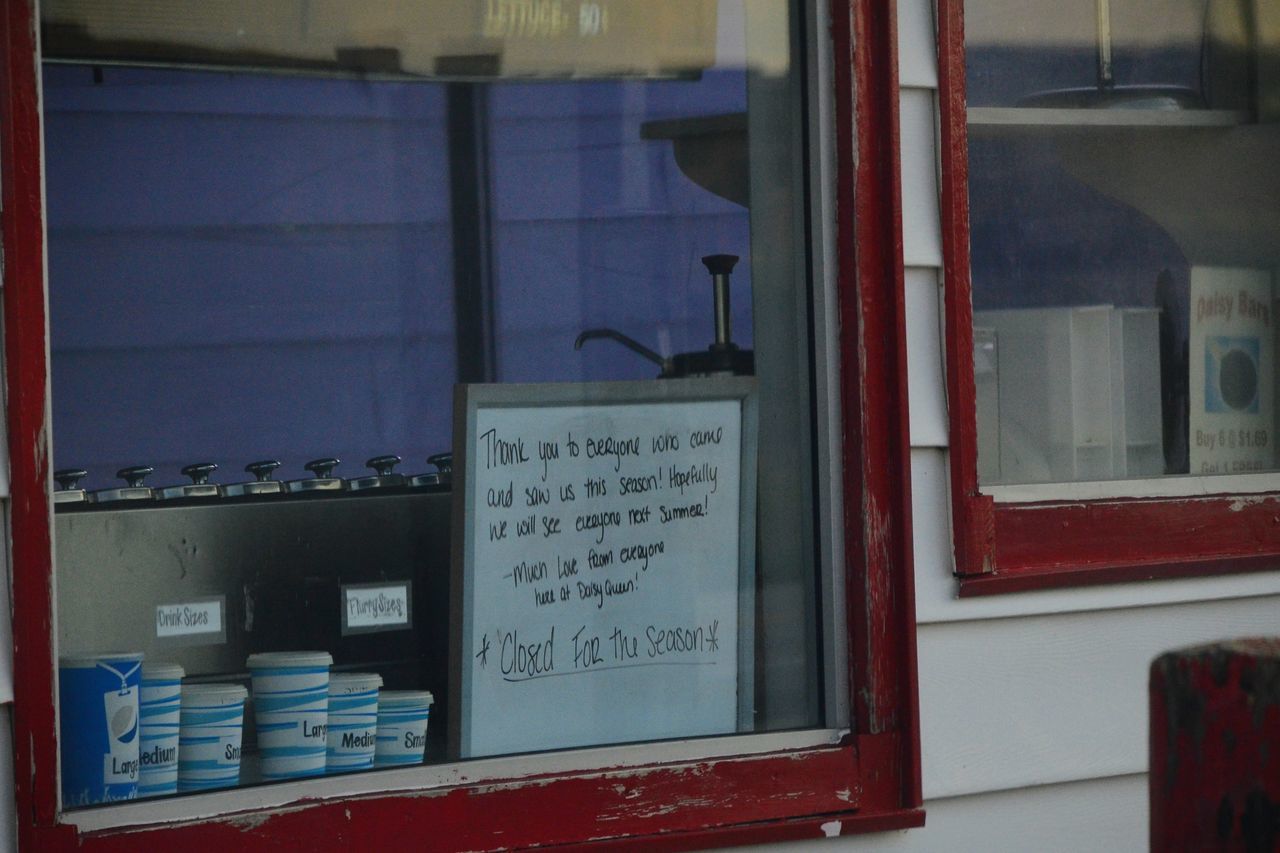 LETTUCE. 50¢
Thank you to everyone who came
and saw us this season! Hopefully
we will see everyone next summer!
-Much Love from everyone
here at Daisy Queen!
* Closed For the Season *
Drink Sizes
Flurry Sizes
Large
Medium
Sm
Larg
Medium
Sma
Daisy Bars
Buy 6 @ $1.69
Get 1 FREE